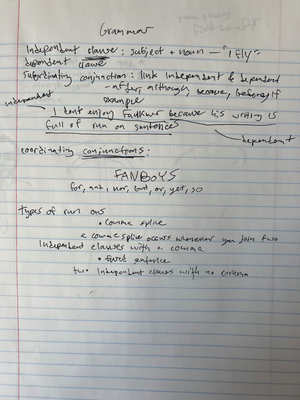 Grammar
Independent clause: subject + noun — "I fly"
dependent clause
Subordinating conjunction: link independent & dependent
- after, although, because, before, if
example
independent
I dont enjoy Faulkner because his writing is
full of run on sentences
dependent
coordinating conjunctions:
FANBOYS
for, and, nor, but, or, yet, so
types of run ons
• comma splice
a comma splice occurs whenever you join two
Independent clauses with a comma
• fused sentence
two independent clauses with no comma